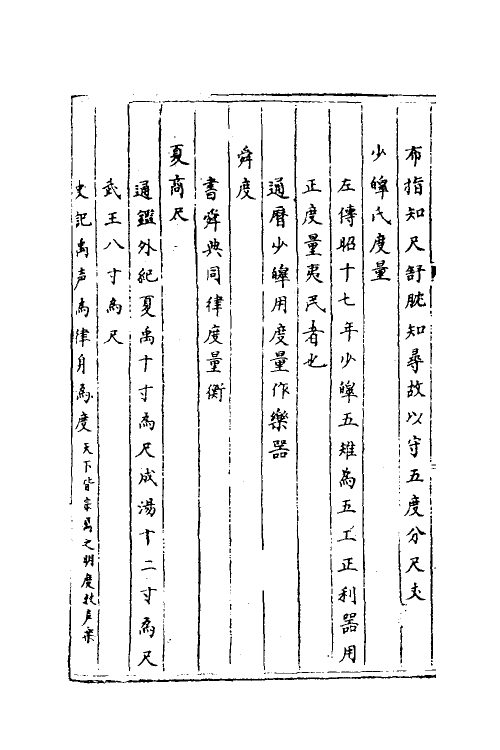 布指知尺舒肱知尋故以守五度分尺丈
少皥氏度量
左傳昭十七年少皥五雉為五工正利器用
正度量夷民者也
通曆少皥用度量作樂器
舜度
書舜典同律度量衡
夏商尺
通鑑外紀夏禹十寸為尺成湯十二寸為尺
武王八寸為尺
史記禹声為律身為度天下皆宗禹之明度数声樂